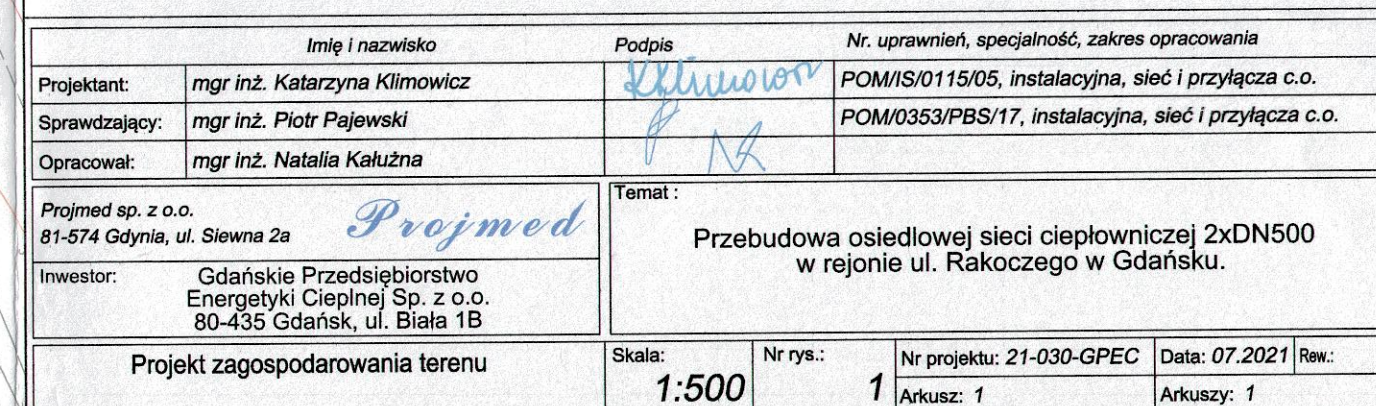 Imię i nazwisko Podpis Nr. uprawnień, specjalność, zakres opracowania
Projektant: mgr inż. Katarzyna Klimowicz KKlimowicz POM/IS/0115/05, instalacyjna, sieć i przyłącza c.o.
Sprawdzający: mgr inż. Piotr Pajewski POM/0353/PBS/17, instalacyjna, sieć i przyłącza c.o.
Opracował: mgr inż. Natalia Kałużna NK
Projmed sp. z o.o.
81-574 Gdynia, ul. Siewna 2a
Projmed
Inwestor: Gdańskie Przedsiębiorstwo
Energetyki Cieplnej Sp. z o.o.
80-435 Gdańsk, ul. Biała 1B
Temat :
Przebudowa osiedlowej sieci ciepłowniczej 2xDN500
w rejonie ul. Rakoczego w Gdańsku.
Projekt zagospodarowania terenu
Skala:
1:500
Nr rys.:
1
Nr projektu: 21-030-GPEC Data: 07.2021 Rew.:
Arkusz: 1 Arkuszy: 1